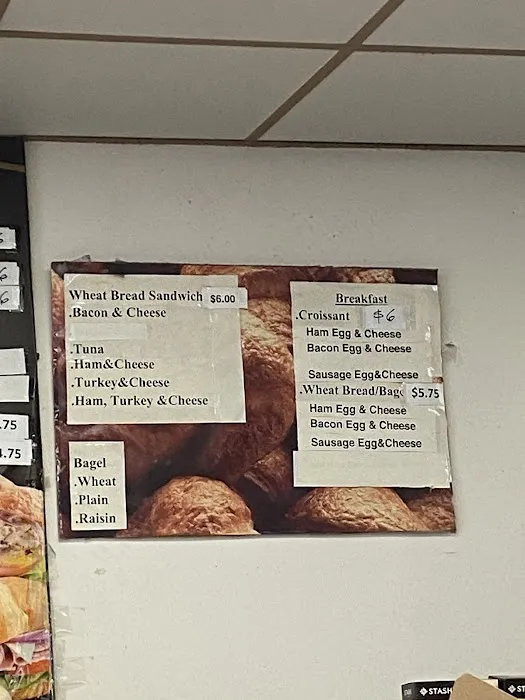 Wheat Bread Sandwich $6.00
.Bacon & Cheese
.Tuna
.Ham&Cheese
.Turkey&Cheese
.Ham, Turkey &Cheese
Bagel
.Wheat
.Plain
.Raisin
Breakfast
.Croissant $6
Ham Egg & Cheese
Bacon Egg & Cheese
Sausage Egg&Cheese
.Wheat Bread/Bage $5.75
Ham Egg & Cheese
Bacon Egg & Cheese
Sausage Egg&Cheese
6
6
.75
4.75
STASH
ST